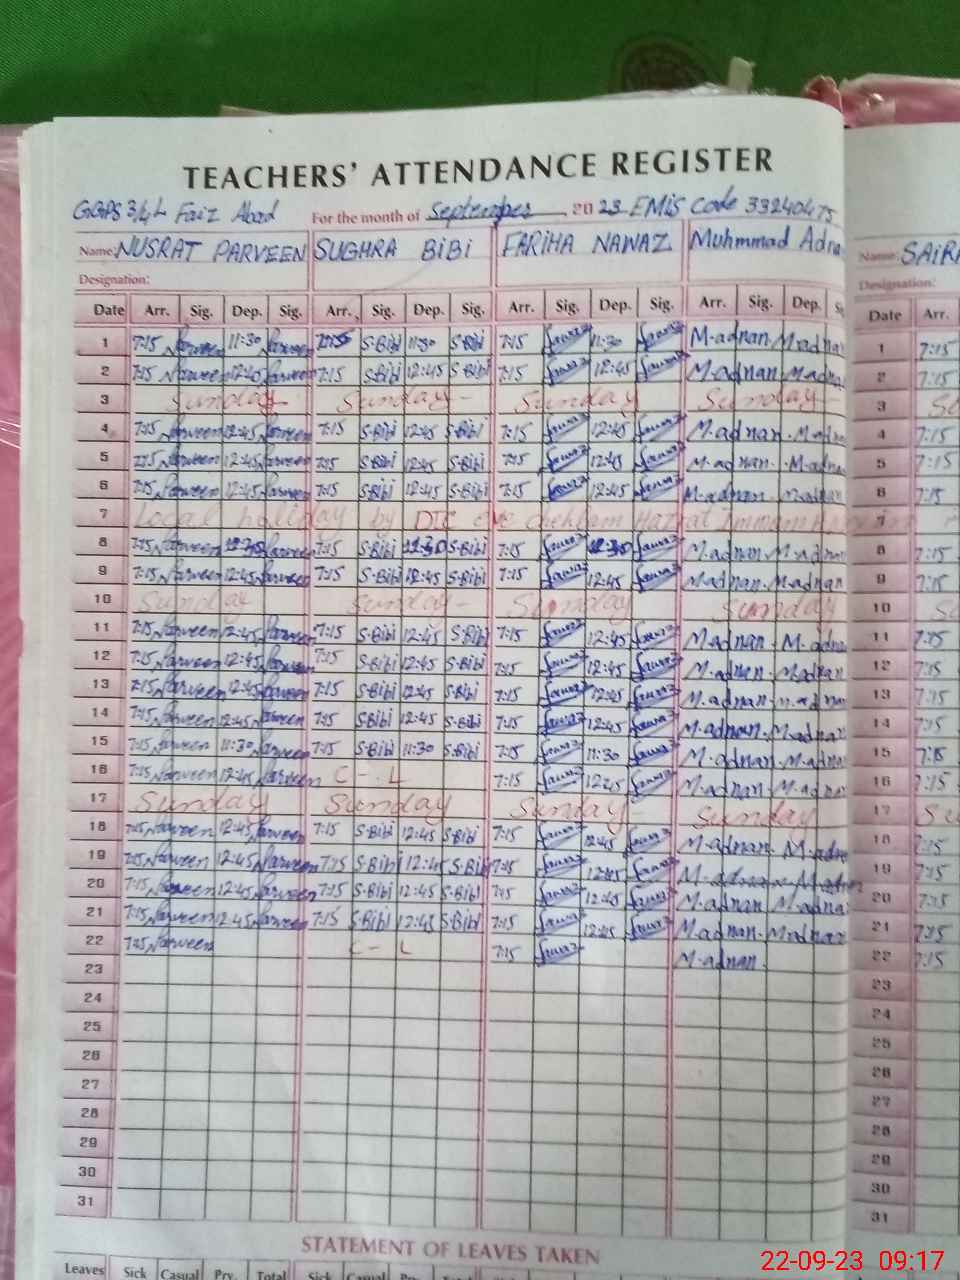 TEACHERS' ATTENDANCE REGISTER
GGPS 3/4L Faiz Abad For the month of September 2023 EMIS Code 33240475
Name: NUSRAT PARVEEN SUGHRA BIBI FARIHA NAWAZ Muhmmad Adna Name: SAIRA
Designation: Designation:
Date Arr. Sig. Dep. Sig. Arr. Sig. Dep. Sig. Arr. Sig. Dep. Sig. Arr. Sig. Dep. Date Arr.
1 7:15 Parveen 11:30 Parveen 7:15 S-Bibi 11:30 S-Bibi 7:15 11:30 M-adnan. Madnan 1 7:15
2 7:15 Parveen 12:45 Parveen 7:15 S-Bibi 12:45 S-Bibi 7:15 12:45 M.adnan Madnan 2 7:15
3 Sunday Sunday- Sunday Sunday- 3
4 7:15 Parveen 12:45 Parveen 7:15 S-Bibi 12:45 S-Bibi 7:15 12:45 M.adnan. Madnan 4 7:15
5 7:15 Parveen 12:45 Parveen 7:15 S-Bibi 12:45 S-Bibi 7:15 12:45 M-adnan. M-adnan 5 7:15
6 7:15 Parveen 12:45 Parveen 7:15 S-Bibi 12:45 S-Bibi 7:15 12:45 M-adnan. Madnan 6 7:15
7 Local holiday by DTE eve chehlam Hazrat Immam 7
8 7:15 Parveen Parveen 7:15 S-Bibi S-Bibi 7:15 M.adnan. M-adnan 8 7:15
9 7:15 Parveen 12:45 Parveen 7:15 S-Bibi 12:45 S-Bibi 7:15 12:45 Madnan. M-adnan 9 7:15
10 Sunday Sunday- Sunday Sunday 10
11 7:15 Parveen 12:45 Parveen 7:15 S-Bibi 12:45 S-Bibi 7:15 12:45 Madnan. M.adnan 11 7:15
12 7:15 Parveen 12:45 Parveen 7:15 S-Bibi 12:45 S-Bibi 7:15 12:45 M-adnan. Madnan 12 7:15
13 7:15 Parveen 12:45 Parveen 7:15 S-Bibi 12:45 S-Bibi 7:15 12:45 M.adnan. m.adnan 13 7:15
14 7:15 Parveen 12:45 Parveen 7:15 S-Bibi 12:45 S-Bibi 7:15 12:45 M-adnan. Madnan 14 7:15
15 7:15 Parveen 11:30 Parveen 7:15 S-Bibi 11:30 S-Bibi 7:15 11:30 M-adnan. M-adnan 15 7:15
16 7:15 Parveen 12:45 Parveen C-L 7:15 12:45 M-adnan. Madnan 16 7:15
17 Sunday Sunday Sunday- Sunday 17
18 7:15 Parveen 12:45 Parveen 7:15 S-Bibi 12:45 S-Bibi 7:15 12:45 M-adnan. M-adnan 18 7:15
19 7:15 Parveen 12:45 Parveen 7:15 S-Bibi 12:45 S-Bibi 7:15 12:45 M-adnan M-adnan 19 7:15
20 7:15 Parveen 12:45 Parveen 7:15 S-Bibi 12:45 S-Bibi 7:15 12:45 M-adnan Madnan 20 7:15
21 7:15 Parveen 12:45 Parveen 7:15 S-Bibi 12:45 S-Bibi 7:15 12:45 Madnan. Madnan 21 7:15
22 7:15 Parveen C-L 7:15 M-adnan. 22 7:15
23 23
24 24
25 25
26 26
27 27
28 28
29 29
30 30
31 31
STATEMENT OF LEAVES TAKEN
Leaves Sick Casual Prv. Total Sick Casual
22-09-23 09:17